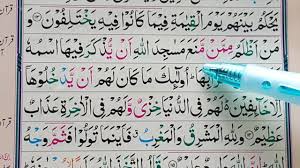 يَحْكُمُ بَيْنَهُمْ يَوْمَ الْقِيٰمَةِ فِيْمَا كَانُوْا فِيْهِ يَخْتَلِفُوْنَ وَ
مَنْ اَظْلَمُ مِمَّنْ مَّنَعَ مَسٰجِدَ اللّٰهِ اَنْ يُّذْكَرَ فِيْهَا اسْمُهٗ
اُولٰٓئِكَ مَا كَانَ لَهُمْ اَنْ يَّدْخُلُوْهَآ
اِلَّا خَآئِفِيْنَ لَهُمْ فِي الدُّنْيَا خِزْيٌ وَّلَهُمْ فِي الْاٰخِرَةِ عَذَابٌ
عَظِيْمٌ وَلِلّٰهِ الْمَشْرِقُ وَالْمَغْرِبُ فَاَيْنَمَا تُوَلُّوْا فَثَمَّ وَجْهُ